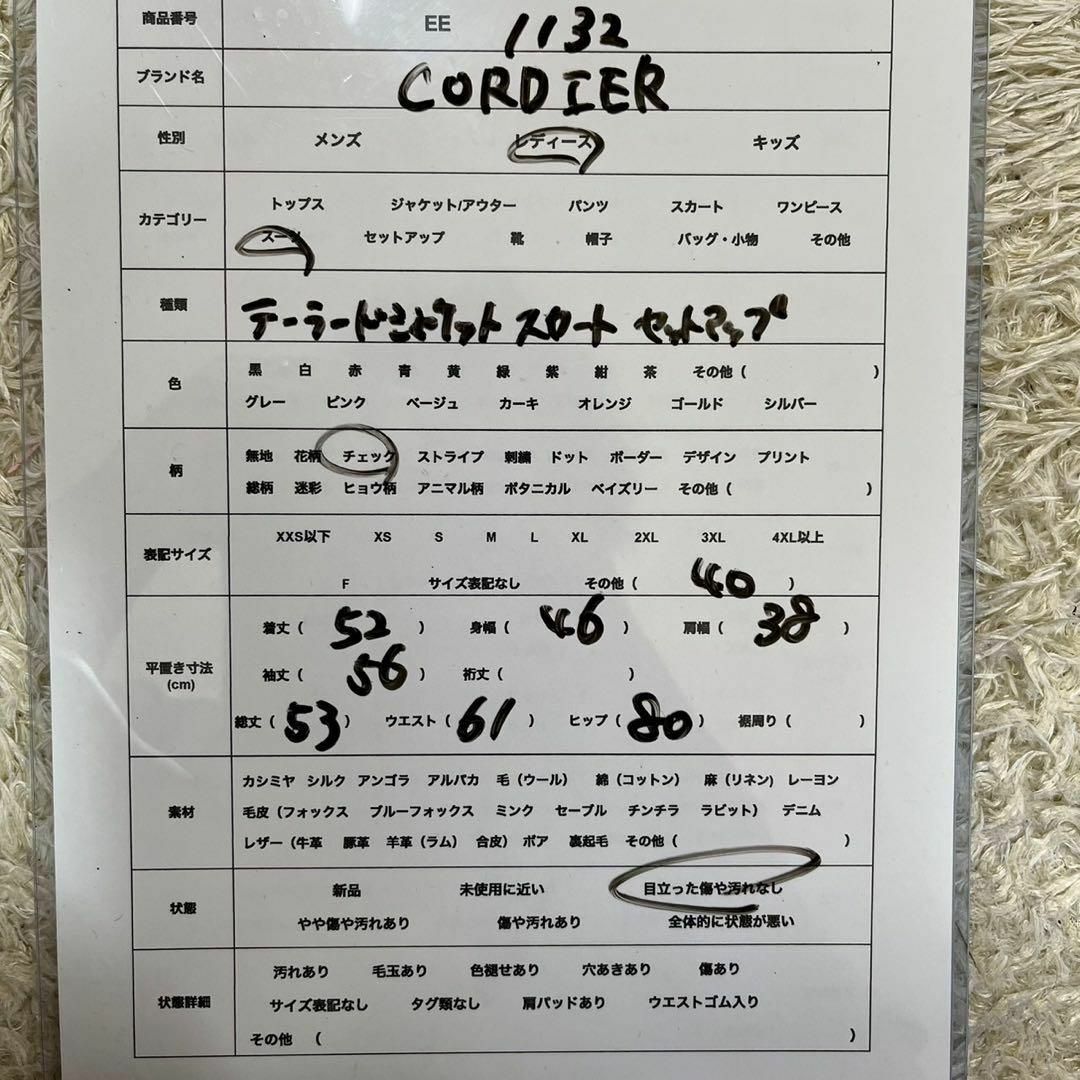 商品番号 EE 1132
ブランド名 CORDIER
性別 メンズ レディース キッズ
カテゴリー トップス ジャケット/アウター パンツ スカート ワンピース
スーツ セットアップ 靴 帽子 バッグ・小物 その他
種類 テーラードジャケット スカート セットアップ
色 黒 白 赤 青 黄 緑 紫 紺 茶 その他 ( )
グレー ピンク ベージュ カーキ オレンジ ゴールド シルバー
柄 無地 花柄 チェック ストライプ 刺繍 ドット ボーダー デザイン プリント
総柄 迷彩 ヒョウ柄 アニマル柄 ボタニカル ペイズリー その他 ( )
表記サイズ XXS以下 XS S M L XL 2XL 3XL 4XL以上
F サイズ表記なし その他 ( 40 )
平置き寸法 (cm) 着丈 ( 52 ) 身幅 ( 46 ) 肩幅 ( 38 )
袖丈 ( 56 ) 裄丈 ( )
総丈 ( 53 ) ウエスト ( 61 ) ヒップ ( 80 ) 裾周り ( )
素材 カシミヤ シルク アンゴラ アルパカ 毛（ウール） 綿（コットン） 麻（リネン） レーヨン
毛皮（フォックス ブルーフォックス ミンク セーブル チンチラ ラビット） デニム
レザー（牛革 豚革 羊革（ラム） 合皮） ボア 裏起毛 その他 ( )
状態 新品 未使用に近い 目立った傷や汚れなし
やや傷や汚れあり 傷や汚れあり 全体的に状態が悪い
状態詳細 汚れあり 毛玉あり 色褪せあり 穴あきあり 傷あり
サイズ表記なし タグ類なし 肩パッドあり ウエストゴム入り
その他 ( )